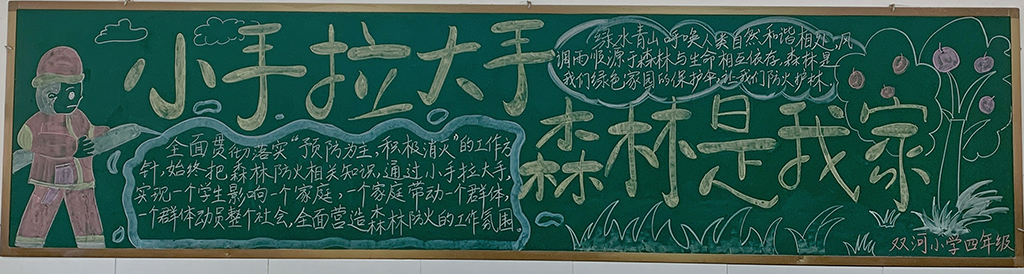 小手拉大手
森林是我家
绿水青山呼唤人类自然和谐相处,风
调雨顺源于森林与生命相互依存,森林是
我们绿色家园的保护伞,让我们防火护林.
全面贯彻落实"预防为主,积极消火"的工作方
针,始终把森林防火相关知识,通过小手拉大手,
实现一个学生影响一个家庭,一个家庭带动一个群体,
一个群体动员整个社会,全面营造森林防火的工作氛围.
双河小学四年级